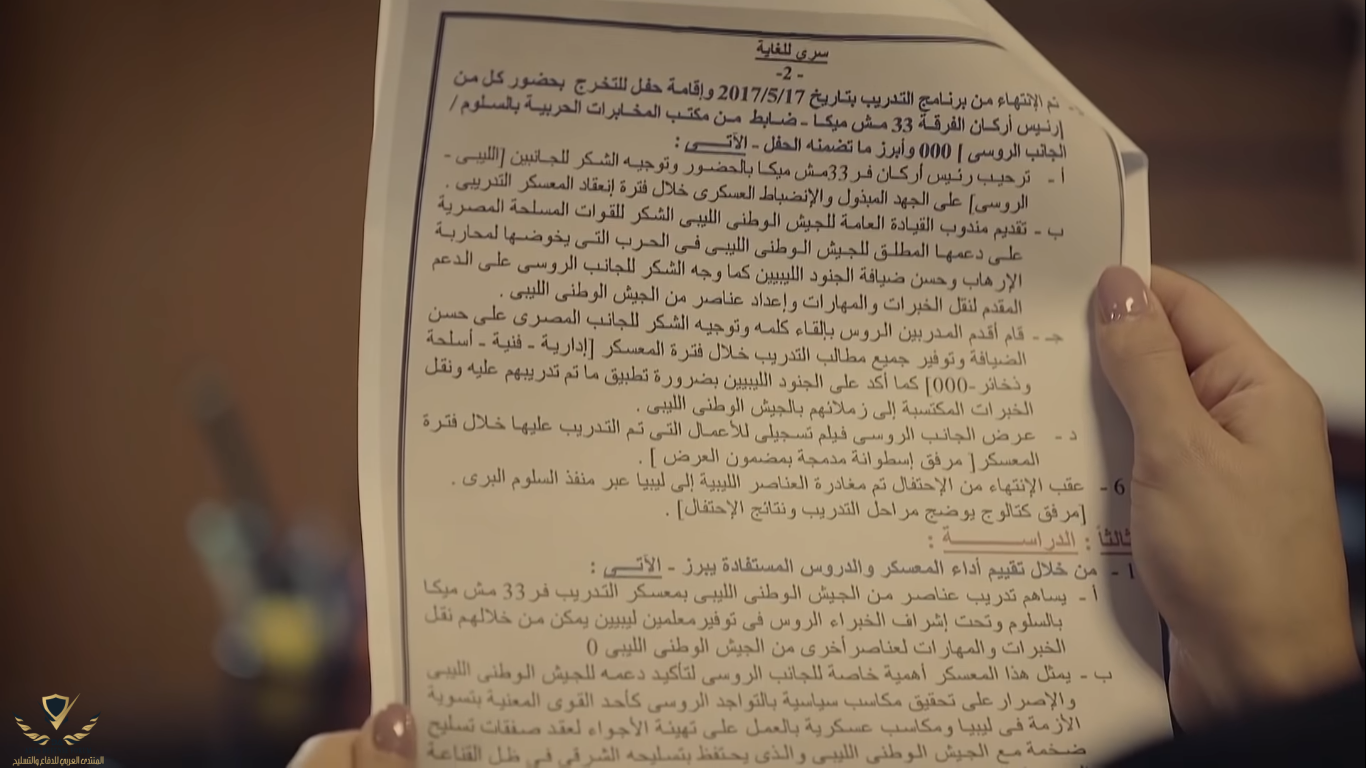 سرى للغاية
-2-
تم الإنتهاء من برنامج التدريب بتاريخ 2017/5/17 وإقامة حفل للتخرج بحضور كل من
[رئيس أركان الفرقة 33 مش ميكا - ضابط من مكتب المخابرات الحربية بالسلوم /
الجانب الروسى ] 000 وأبرز ما تضمنه الحفل - الآتــى :
أ - ترحيب رئيس أركان فر33مش ميكا بالحضور وتوجيه الشكر للجانبين [الليبى -
الروسى] على الجهد المبذول والإنضباط العسكرى خلال فترة إنعقاد المعسكر التدريبى .
ب - تقديم مندوب القيادة العامة للجيش الوطنى الليبى الشكر للقوات المسلحة المصرية
على دعمها المطلق للجيش الوطنى الليبى فى الحرب التى يخوضها لمحاربة
الإرهاب وحسن ضيافة الجنود الليبيين كما وجه الشكر للجانب الروسى على الدعم
المقدم لنقل الخبرات والمهارات وإعداد عناصر من الجيش الوطنى الليبى .
جـ - قام أقدم المدربين الروس بإلقاء كلمه وتوجيه الشكر للجانب المصرى على حسن
الضيافة وتوفير جميع مطالب التدريب خلال فترة المعسكر [إدارية - فنية - أسلحة
وذخائر -000] كما أكد على الجنود الليبيين بضرورة تطبيق ما تم تدريبهم عليه ونقل
الخبرات المكتسبة إلى زملائهم بالجيش الوطنى الليبى .
د - عرض الجانب الروسى فيلم تسجيلى للأعمال التى تم التدريب عليها خلال فترة
المعسكر[ مرفق إسطوانة مدمجة بمضمون العرض ] .
6 - عقب الإنتهاء من الإحتفال تم مغادرة العناصر الليبية إلى ليبيا عبر منفذ السلوم البرى .
[مرفق كتالوج يوضح مراحل التدريب ونتائج الإحتفال] .
ثالثاً : الدراســـــــة :
1 - من خلال تقييم أداء المعسكر والدروس المستفادة يبرز - الآتــى :
أ - يساهم تدريب عناصر من الجيش الوطنى الليبى بمعسكر التدريب فر33 مش ميكا
بالسلوم وتحت إشراف الخبراء الروس فى توفير معلمين ليبيين يمكن من خلالهم نقل
الخبرات والمهارات لعناصر أخرى من الجيش الوطنى الليبى 0
ب - يمثل هذا المعسكر أهمية خاصة للجانب الروسى لتأكيد دعمه للجيش الوطنى الليبى
والإصرار على تحقيق مكاسب سياسية بالتواجد الروسى كأحد القوى المعنية بتسوية
الأزمة فى ليبيا ومكاسب عسكرية بالعمل على تهيئة الأجواء لعقد صفقات تسليح
ضخمة مع الجيش الوطنى الليبى والذى يحتفظ بتسليحه الشرقى فى ظل القناعة
المنتدى العربي للدفاع والتسليح